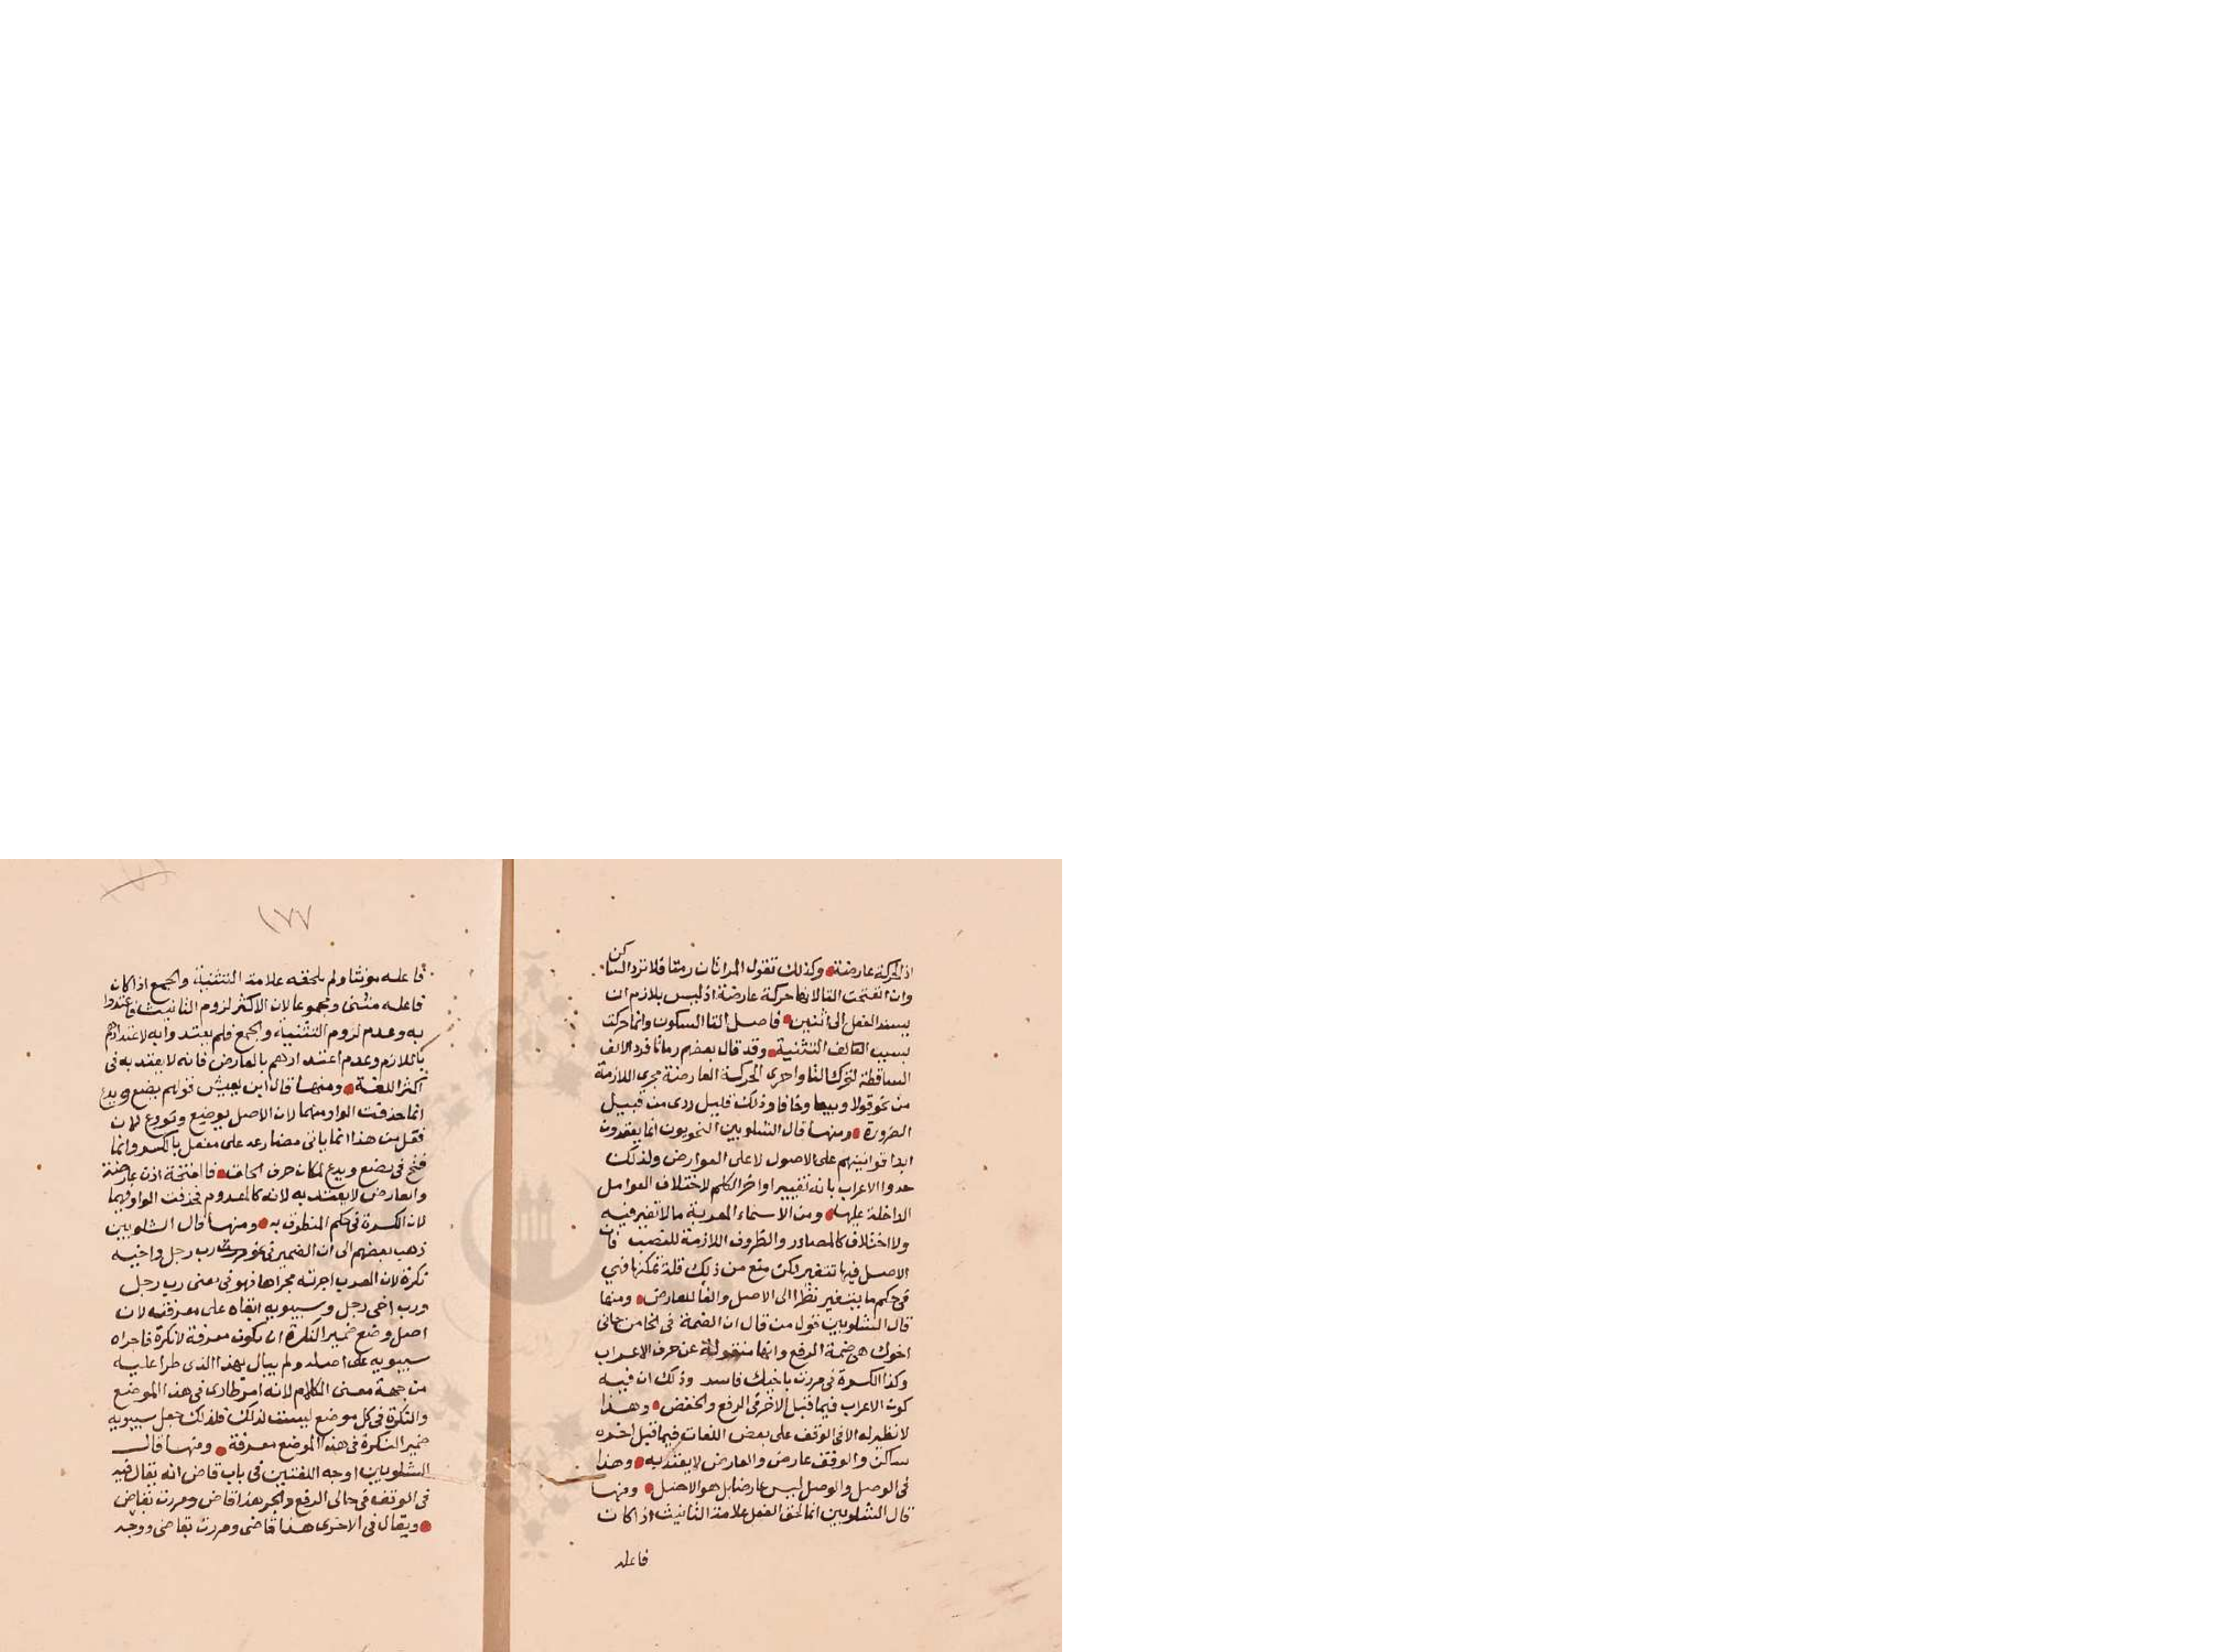 اذ الحركة عارضة وكذلك تقول المراتان رمتا فلا ترد الساكن
وان انفتحت التا لانها حركة عارضة اذ ليس بلازم ان
يسند الفعل الى اثنين فاصل التا السكون وانما حركت
بسبب الف التثنية وقد قال بعضهم رماتا فرد الالف
الساقطة لتحرك التا واجرى الحركة العارضة مجرى اللازمة
من نحو قولا وبيعا وخافا وذلك قليل ردى من قبيل
الضرورة ومنها قال الشلوبين النحويون انما يعقدون
ابدا قوانينهم على الاصول لا على العوارض ولذلك
حدوا الاعراب بانه تغيير اواخر الكلم لاختلاف العوامل
الداخلة عليها ومن الاسماء المعربة ما لا تغير فيه
ولا اختلاف كالمصادر والظروف اللازمة للنصب فان
الاصل فيها تتغير ولكن منع من ذلك قلة تمكنها فهي
في حكم ما يتغير نظرا الى الاصل والغا للعارض ومنها
قال الشلوبين قول من قال ان الضمة في الخا من جاني
اخوك هى ضمة الرفع وانها منقولة عن حرف الاعراب
وكذا الكسرة في مررت باخيك فاسد وذلك ان فيه
كون الاعراب فيما قبل الاخر في الرفع والخفض وهذا
لا نظير له الا في الوقف على بعض اللغات فيما قبل اخره
ساكن والوقف عارض والعارض لا يعتد به وهذا
في الوصل والوصل ليس عارضا بل هو الاصل ومنها
قال الشلوبين انما لحق الفعل علامة التانيث اذا كان
فاعله
١٧٧
فاعله مونثا ولم يلحقه علامة التثنية والجمع اذا كان
فاعله مثنى ومجموعا لان الاكثر لزوم التانيث فاعتدوا
به وعدم لزوم التثنية والجمع فلم يعتدوا به لاعتدادهم
باللازم وعدم اعتدادهم بالعارض فانه لا يعتد به في
اكثر اللغة ومنها قال ابن يعيش قولهم يضع ويدع
انما حذفت الواو منهما لان الاصل يوضع ويودع لان
فعل من هذا انما ياتي مضارعه على يفعل بالكسر وانما
فتح في يضع ويدع لمكان حرف الحلق فالفتحة اذن عارضة
والعارض لا يعتد به لانه كالمعدوم فحذفت الواو فيهما
لان الكسرة في حكم المنطوق به ومنها قال الشلوبين
ذهب بعضهم الى ان الضمير في نحو رب رجل واخيه
نكرة لان العرب اجرته مجراها فهو في معنى رب رجل
ورب اخى رجل وسيبويه ابقاه على معرفته لان
اصل وضع ضمير النكرة ان يكون معرفة لا نكرة فاجراه
سيبويه على اصله ولم يبال بهذا الذى طرا عليه
من جهة معنى الكلام لانه امر طارى في هذا الموضع
والنكرة في كل موضع ليست لذلك فلذلك جعل سيبويه
ضمير النكرة في هذا الموضع معرفة ومنها قال
الشلوبين اوجه اللغتين في باب قاض انه يقال فيه
في الوقف في حالى الرفع والجر هذا قاض ومررت بقاض
ويقال في الاخرى هذا قاضى ومررت بقاضى ووجه